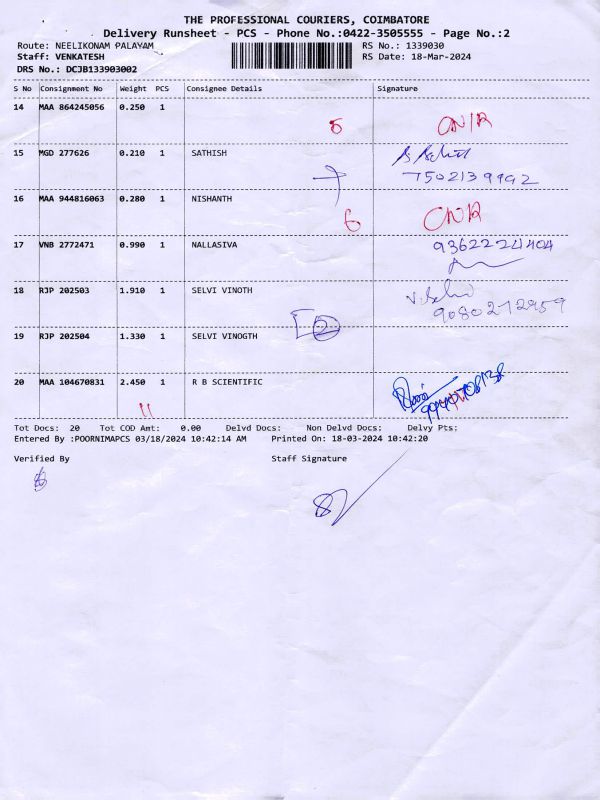 THE PROFESSIONAL COURIERS, COIMBATORE
Delivery Runsheet - PCS - Phone No.:0422-3505555 - Page No.:2
Route: NEELIKONAM PALAYAM RS No.: 1339030
Staff: VENKATESH RS Date: 18-Mar-2024
DRS No.: DCJB133903002
S No Consignment No Weight PCS Consignee Details Signature
14 MAA 864245056 0.250 1
5 CN/R
15 MGD 277626 0.210 1 SATHISH
7502139992
16 MAA 944816063 0.280 1 NISHANTH
6 CNR
17 VNB 2772471 0.990 1 NALLASIVA 9362224404
18 RJP 202503 1.910 1 SELVI VINOTH
9080212959
2
19 RJP 202504 1.330 1 SELVI VINOGTH
20 MAA 104670831 2.450 1 R B SCIENTIFIC
11
Tot Docs: 20 Tot COD Amt: 0.00 Delvd Docs: Non Delvd Docs: Delvy Pts:
Entered By :POORNIMAPCS 03/18/2024 10:42:14 AM Printed On: 18-03-2024 10:42:20
Verified By Staff Signature